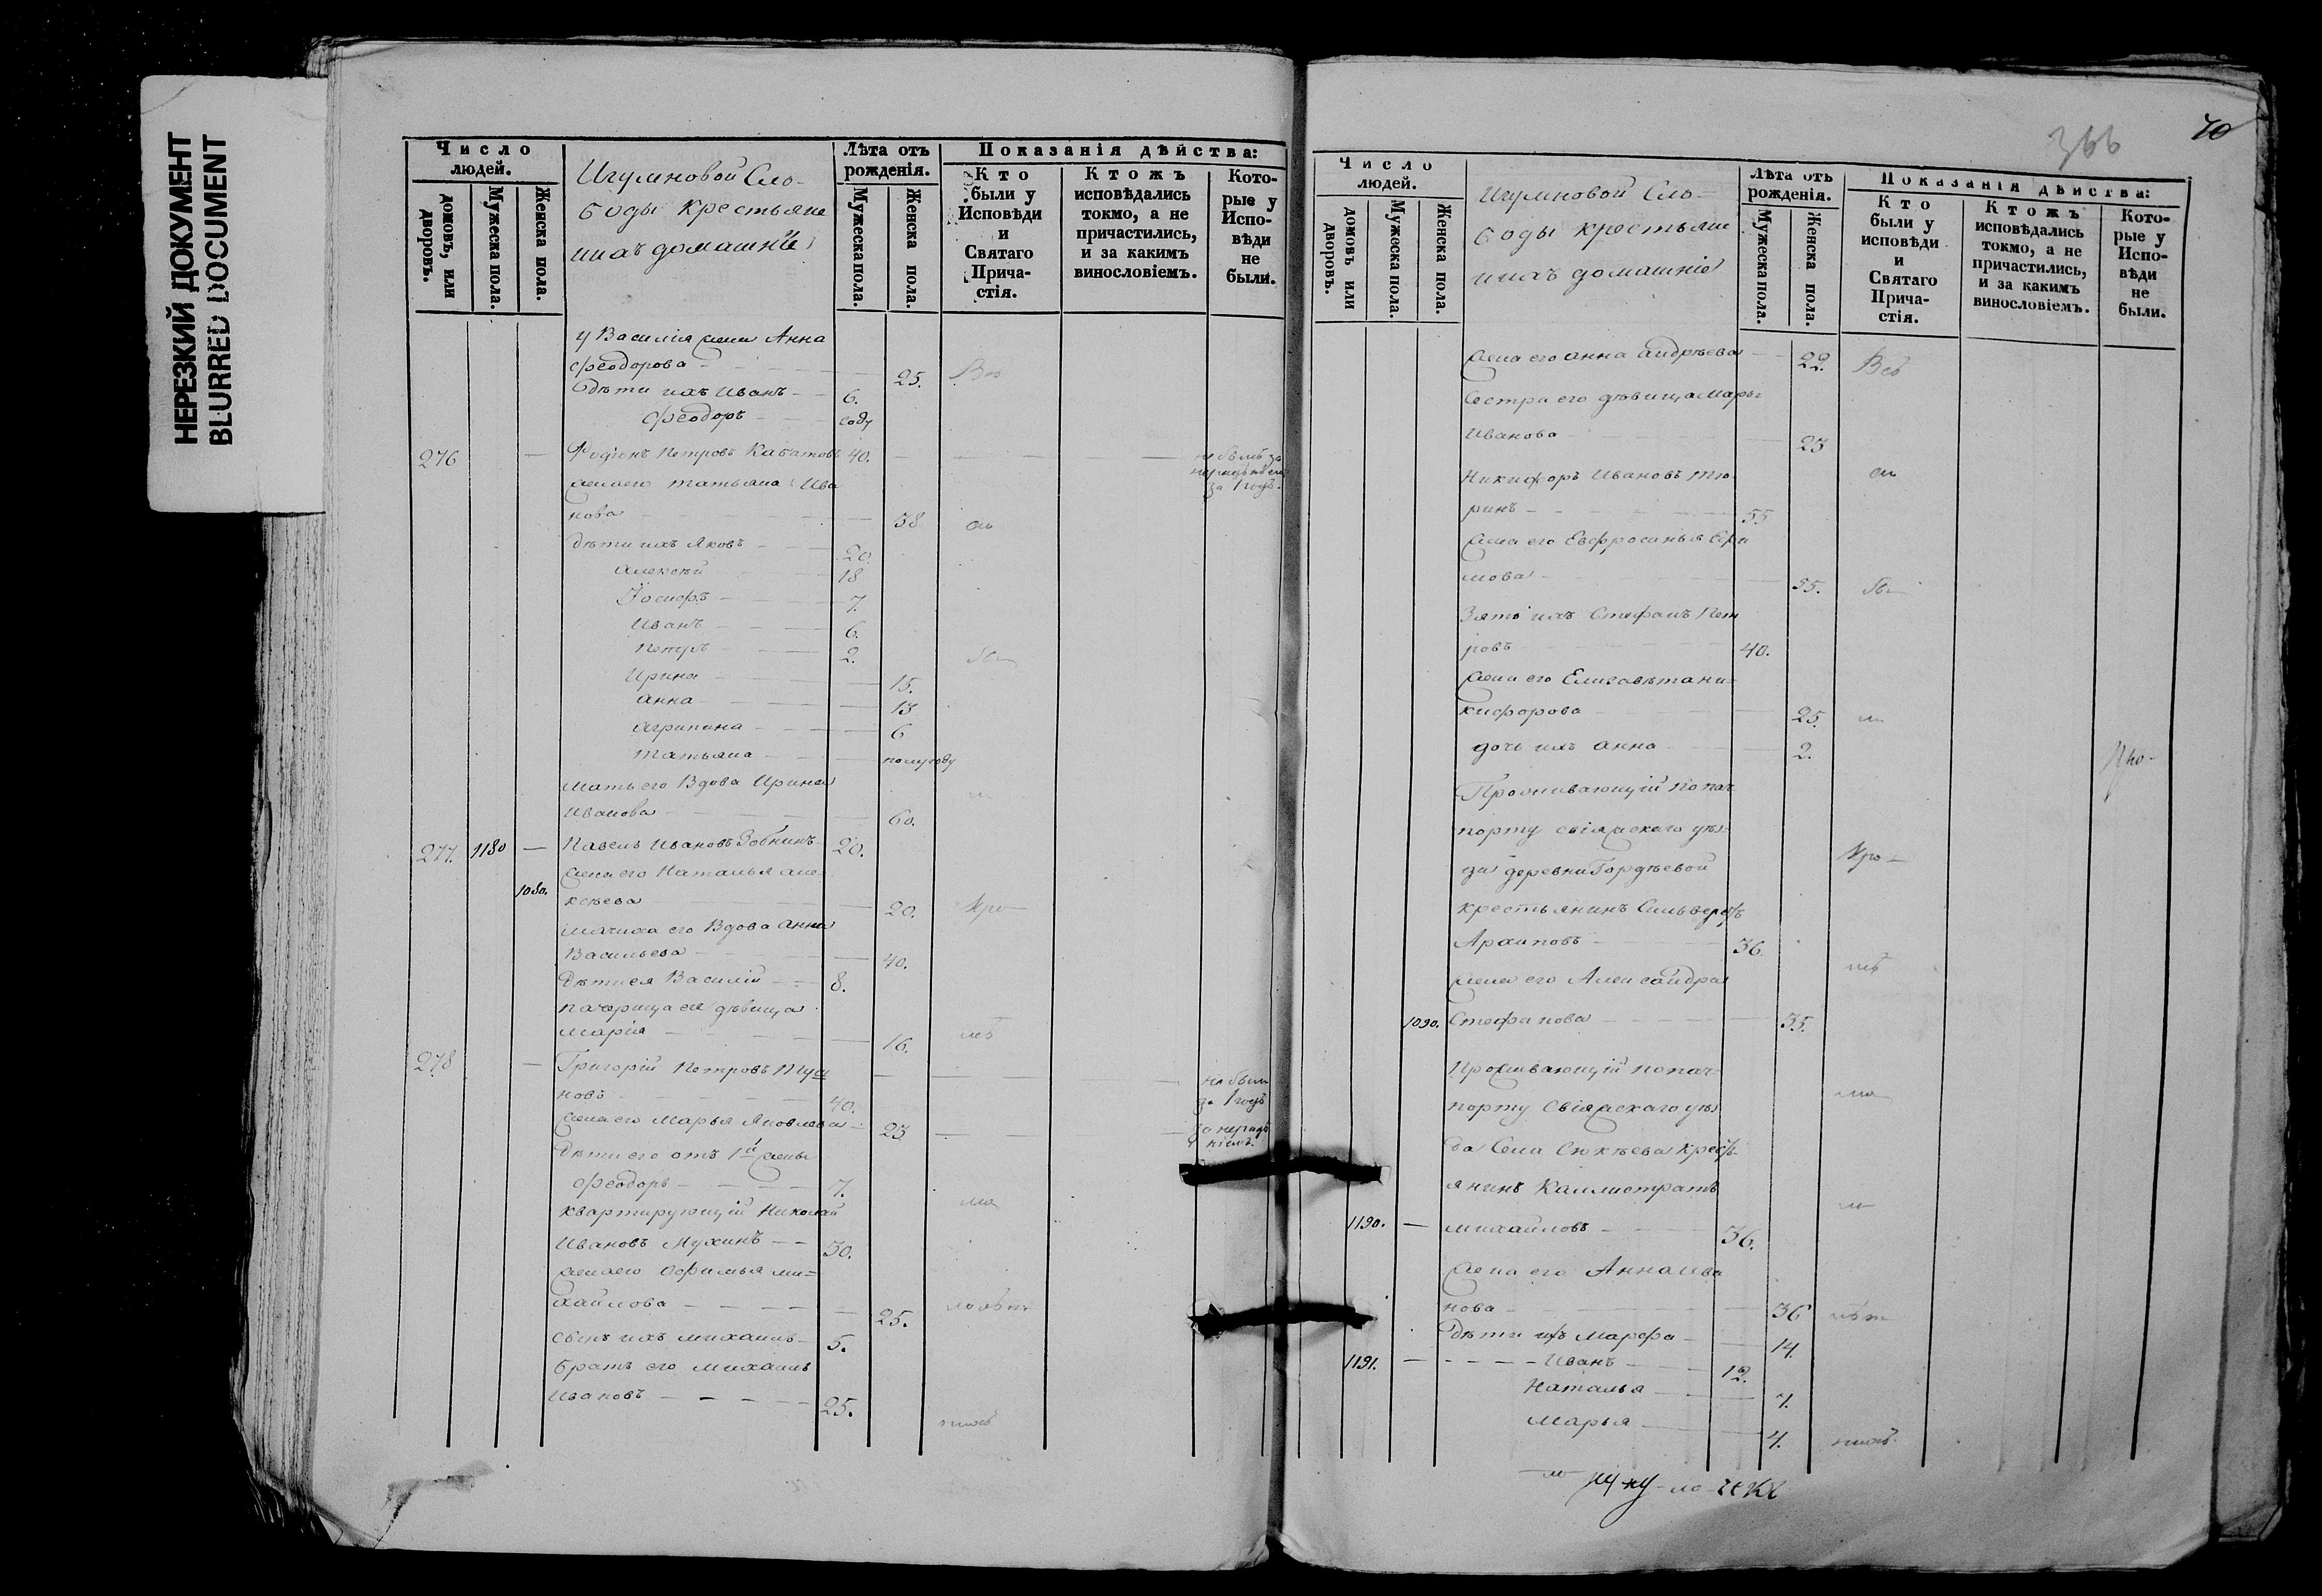 НЕРЕЗКИЙ ДОКУМЕНТ
BLURRED DOCUMENT
Число людей.
домовъ, или дворовъ.
Мужеска пола.
Женска пола.
Игумновой Сло-
боды крестьяне
ихъ домашніе
Лѣта отъ рожденія.
Мужеска пола.
Женска пола.
Показанія дѣйства:
Кто были у Исповѣди и Святаго Прича-стія.
Ктожъ исповѣдались токмо, а не причастились, и за какимъ винословіемъ.
Кото-рые у Испо-вѣди не были.
у Василія жена Анна
Феодорова 25.
Дѣти ихъ Иванъ 6.
Феодоръ году
276 — Родіонъ Петровъ 40. не былъ за
нерадѣніем
за 1 годъ.
жена его Татьяна Ива
нова 38
дѣти ихъ Яковъ 20.
Алексѣй 18
Іосифъ 7.
Иванъ 6.
Петръ 2.
Ирина 15.
Анна 13
Агрипина 6
Татьяна полугоду
мать его Вдова Ирина
Иванова 60.
277. 1180 — Павелъ Ивановъ Зобнинъ 20.
жена его Наталья але-
1080. ксѣева 20.
мачиха его Вдова Анна
Васильева 40.
Дѣти ея Василій 8.
пачерица ея дѣвица
Марія 16.
278 — Григорій Петровъ
новъ 40. не были
за 1 годъ
жена его Марья Яковлева 23 за нерадѣ
ніемъ.
Дѣти его отъ 1й жены
Феодоръ 7.
квартирующій Николай
Ивановъ Мухинъ 30.
жена его Офимья ми=
хайлова 25.
сынъ ихъ михаилъ 5.
братъ его михаилъ
Ивановъ 25.
366
70
Число людей.
домовъ или дворовъ.
Мужеска пола.
Женска пола.
Игумновой Сло-
боды крестьяне
ихъ домашніе
Лѣта отъ рожденія.
Мужеска пола.
Женска пола.
Показанія дѣйства:
Кто были у исповѣди и Святаго Прича-стія.
Ктожъ исповѣдались токмо, а не причастились, и за какимъ винословіемъ.
Кото-рые у Испо-вѣди не были.
жена его анна андрѣева 22.
Сестра его дѣвица Марья
Иванова 23
Никифоръ Ивановъ Тю
ринъ 55
жена его Евфросинья Ефи
мова 55.
Зять ихъ Стефанъ Пет
ровъ 40.
жена его Елизавѣта ни=
кифорова 25.
дочь ихъ анна 2.
Проживающій по пач-
порту свіяжскаго уѣз-
да деревни Гордѣевой
крестьянинъ Сильверстъ
Архиповъ 36.
жена его Александра
1090. Стефанова 35.
Проживающій по пач-
порту Свіяжскаго уѣз
да Села Сюкѣева крестъ-
янинъ Каллистратъ
1190. — михайловъ 36.
жена его Анна Ива
нова 36
Дѣти ихъ Марфа 14.
1191. — Иванъ 12.
Наталья 7.
Марья 4.